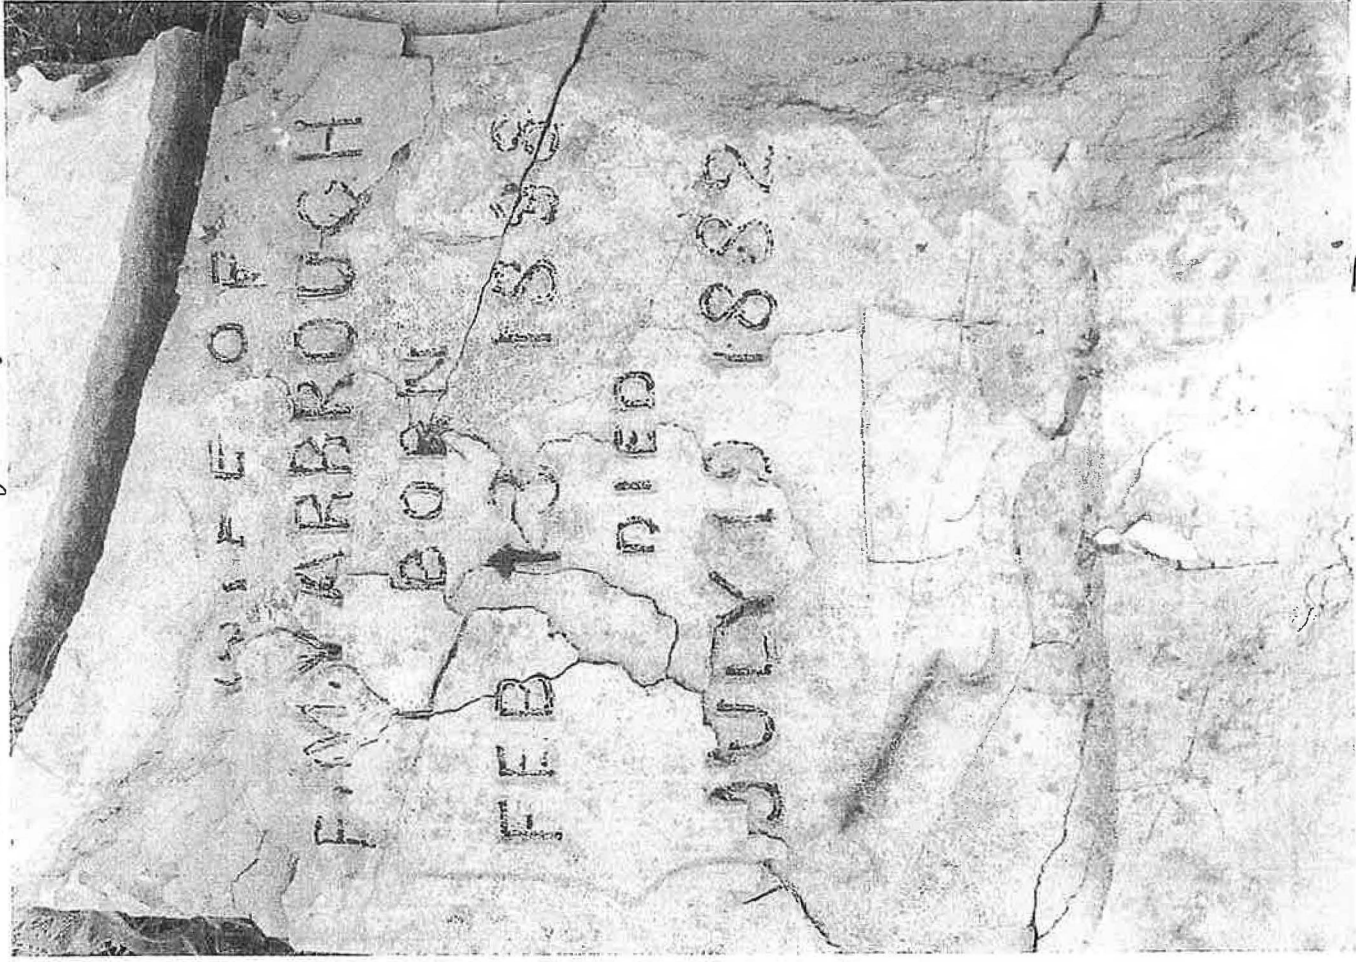 WIFE OF
F. M. YARBROUGH
BORN
FEB
DIED
JULY 19 1882